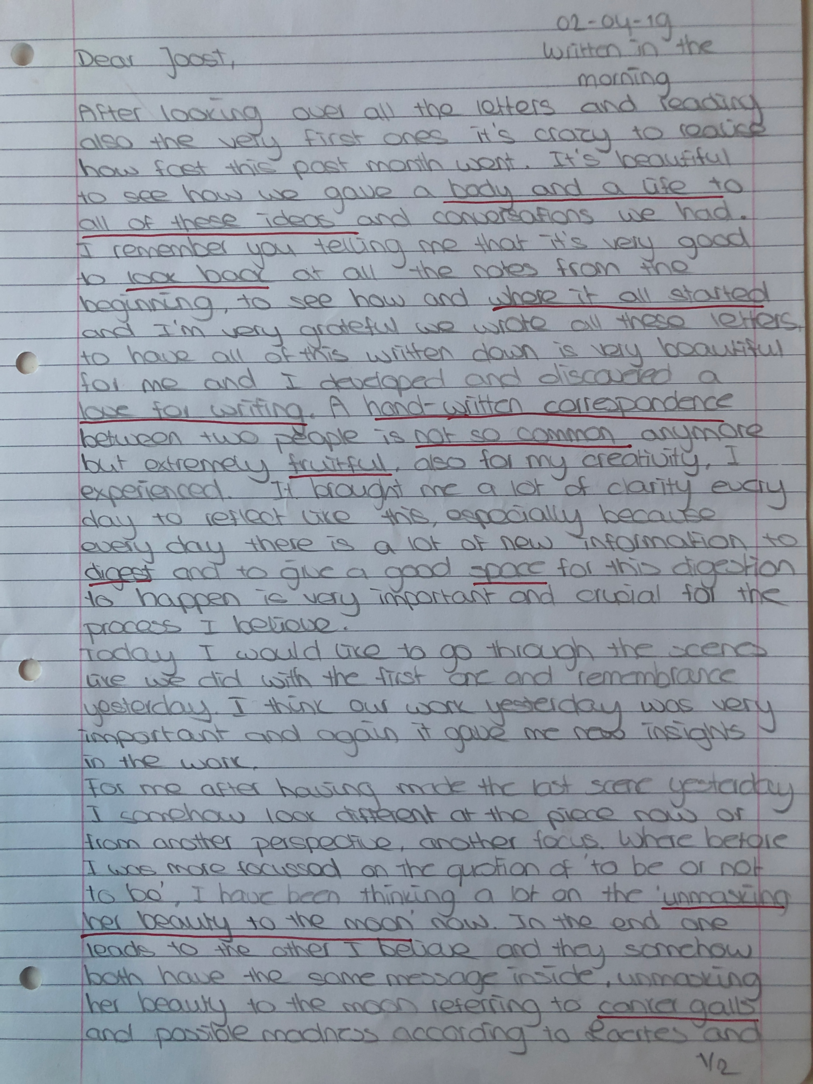 02-04-19
Dear Joost,
written in the
morning
After looking over all the letters and reading
also the very first ones it's crazy to realise
how fast this past month went. It's beautiful
to see how we gave a body and a life to
all of these ideas and conversations we had.
I remember you telling me that it's very good
to look back at all the notes from the
beginning, to see how and where it all started
and I'm very grateful we wrote all these letters,
to have all of this written down is very beautiful
for me and I developed and discovered a
love for writing. A hand-written correspondence
between two people is not so common anymore
but extremely fruitful, also for my creativity, I
experienced. It brought me a lot of clarity every
day to reflect like this, especially because
every day there is a lot of new information to
digest and to give a good space for this digestion
to happen is very important and crucial for the
process I believe.
Today I would like to go through the scenes
like we did with the first one and remembrance
yesterday. I think our work yesterday was very
important and again it gave me new insights
in the work.
For me after having made the last scene yesterday
I somehow look different at the piece now or
from another perspective, another focus. Where before
I was more focussed on the question of 'to be or not
to be', I have been thinking a lot on the 'unmasking
her beauty to the moon' now. In the end one
leads to the other I believe and they somehow
both have the same message inside, unmasking
her beauty to the moon referring to canker galls
and possible madness according to Laertes and
1/2